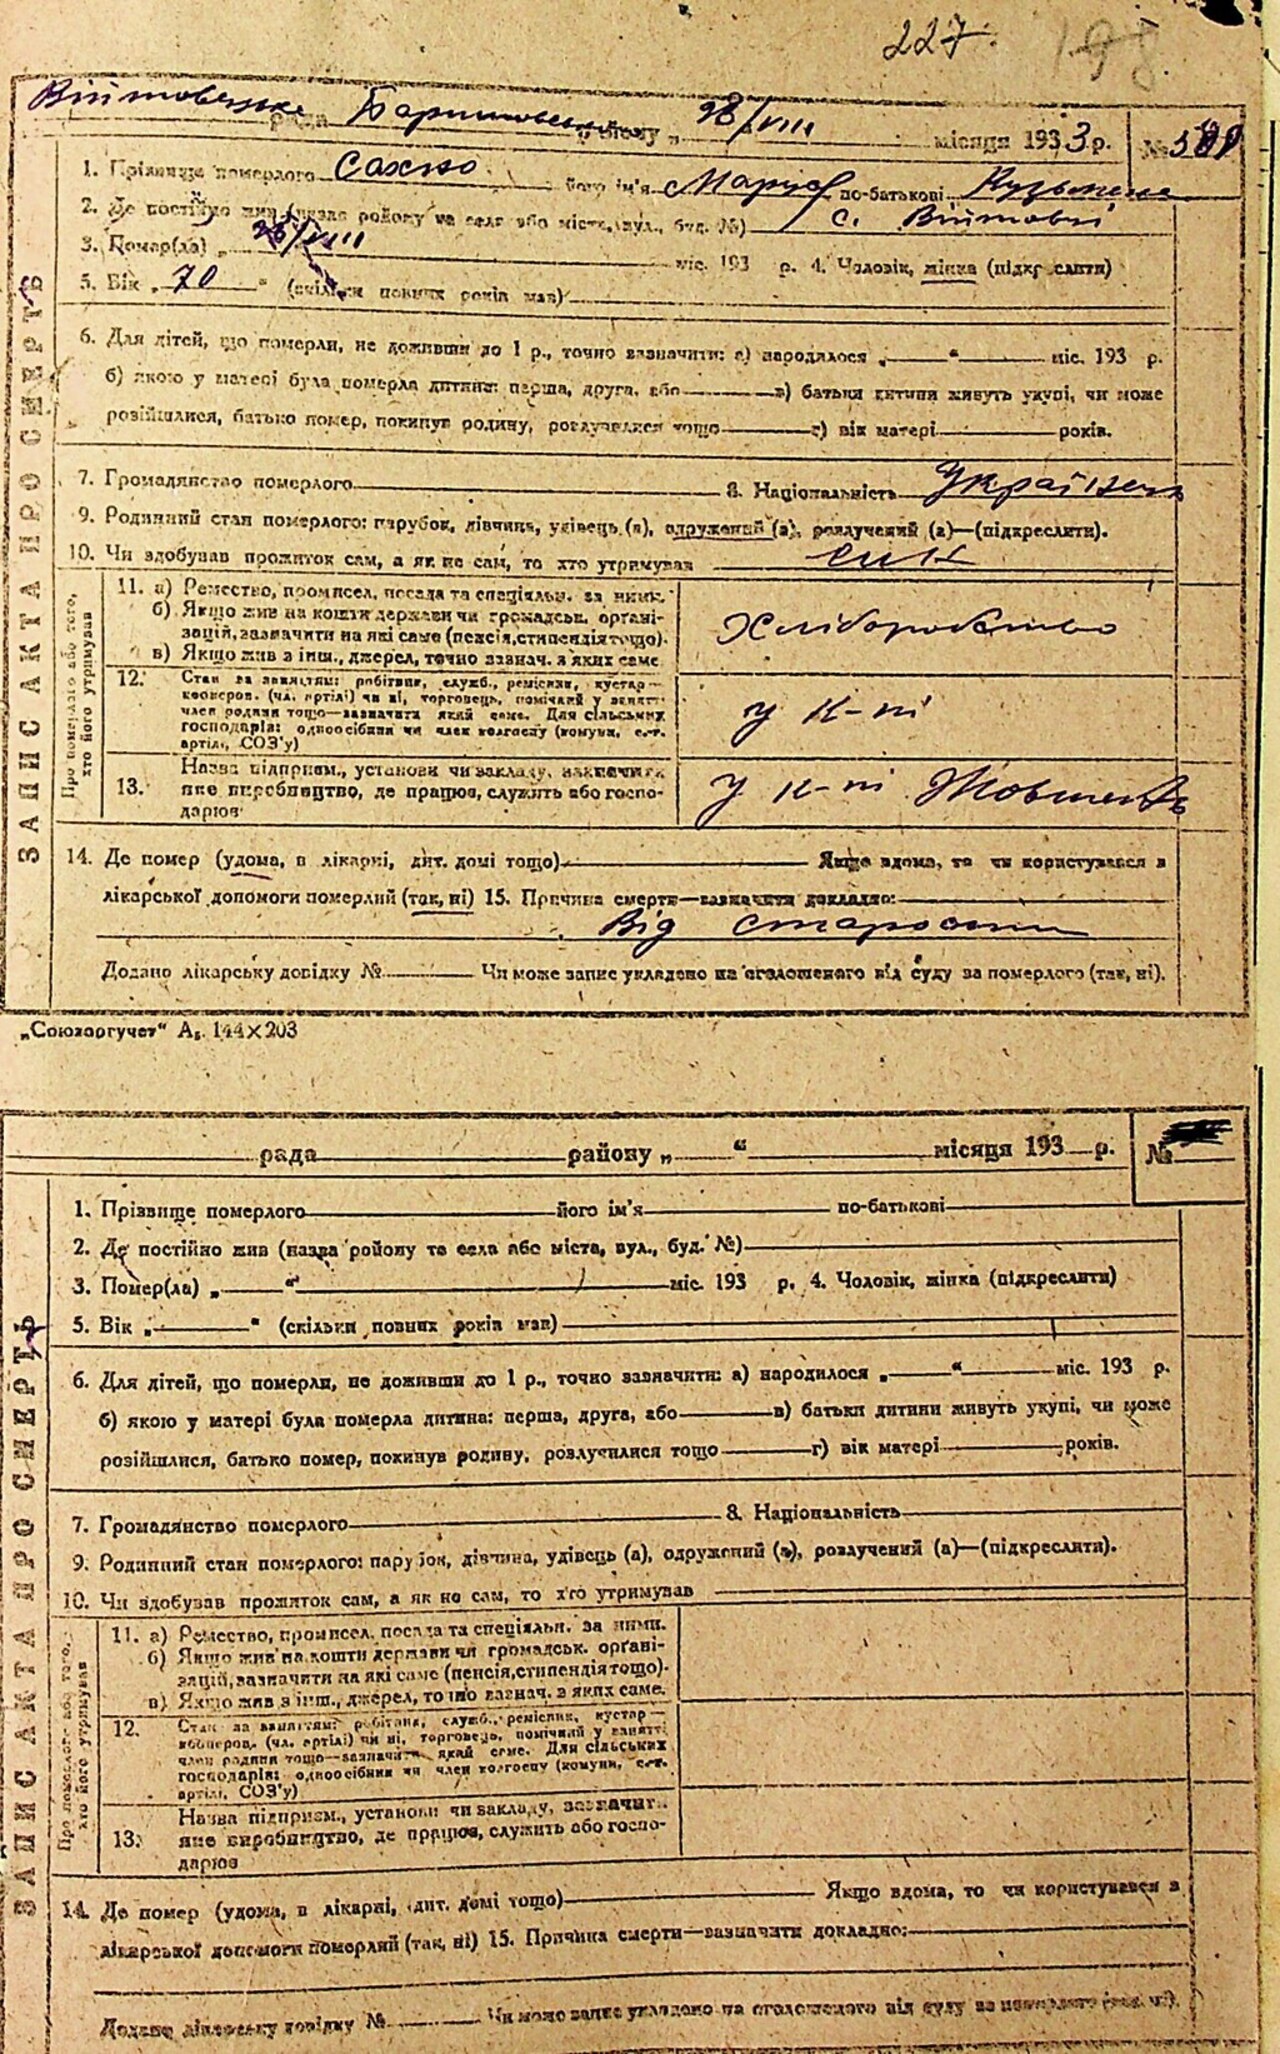 227. 198
Війтовецька рада Баришівського району „ 28/VIII місяця 1933 р. №
1. Прізвище померлого Сахно його ім'я Марія по-батькові
2. Де постійно жив (назва району та села або міста, вул., буд. №) с. Війтовці
3. Помер(ла) „ 26/VIII міс. 193 р. 4. Чоловік, жінка (підкреслити)
5. Вік „ 70 “ (скільки повних років мав)
6. Для дітей, що померли, не доживши до 1 р., точно зазначити: а) народилося „ “ міс. 193 р.
б) якою у матері була померла дитина: перша, друга, або в) батьки дитини живуть укупі, чи може
розійшлися, батько помер, покинув родину, розлучилися тощо г) вік матері років.
7. Громадянство померлого 8. Національність Українка
9. Родинний стан померлого: парубок, дівчина, удівець (а), одружений (а), розлучений (а)—(підкреслити).
10. Чи здобував прожиток сам, а як не сам, то хто утримував син
ЗАПИС АКТА ПРО СМЕРТЬ
Про померлого або того, хто його утримував
11. а) Ремество, промисел, посада та спеціяльн. за ними.
б) Якщо жив на кошти держави чи громадськ. органі-
зацій, зазначити на які саме (пенсія, стипендія тощо).
в) Якщо жив з інш., джерел, точно зазнач. з яких саме
Хліборобство
12. Стан за заняттям: робітник, служб., ремісник, кустар—
кооперов. (чл. артілі) чи ні, торговець, помічний у занятт.
член родини тощо—зазначити який саме. Для сільських
господарів: одноосібник чи член колгоспу (комуни, с.-г.
артілі, СОЗ'у)
у к-пі
13. Назва підприєм., установи чи закладу, зазначити
яке виробництво, де працює, служить або госпо-
дарює
у к-пі Жовтень
14. Де помер (удома, в лікарні, дит. домі тощо) Якщо вдома, то чи користувався в
лікарської допомоги померлий (так, ні) 15. Причина смерти—зазначити докладно:
Від старости
Додано лікарську довідку № Чи може запис укладено на оголошеного від суду за померлого (так, ні).
„Союзоргучет“ А₅. 144×203
рада району „ “ місяця 193 р. №
1. Прізвище померлого його ім'я по-батькові
2. Де постійно жив (назва ройону та села або міста, вул., буд. №)
3. Помер(ла) „ “ міс. 193 р. 4. Чоловік, жінка (підкреслити)
5. Вік „ “ (скільки повних років мав)
6. Для дітей, що померли, не доживши до 1 р., точно зазначити: а) народилося „ “ міс. 193 р.
б) якою у матері була померла дитина: перша, друга, або в) батьки дитини живуть укупі, чи може
розійшлися, батько помер, покинув родину, розлучилися тощо г) вік матері років.
7. Громадянство померлого 8. Національність
9. Родинний стан померлого: парубок, дівчина, удівець (а), одружений (а), розлучений (а)—(підкреслити).
10. Чи здобував прожиток сам, а як не сам, то хто утримував
ЗАПИС АКТА ПРО СМЕРТЬ
Про померлого або того, хто його утримував
11. а) Ремество, промисел, посада та спеціяльн. за ними.
б) Якщо жив на кошти держави чи громадськ. органі-
зацій, зазначити на які саме (пенсія, стипендія тощо).
в) Якщо жив з інш., джерел, точно зазнач. з яких саме.
12. Стан за заняттям: робітник, служб., ремісник, кустар—
кооперов. (чл. артілі) чи ні, торговець, помічний у занятті
член родини тощо—зазначити який саме. Для сільських
господарів: одноосібник чи член колгоспу (комуни, с.-г.
артілі, СОЗ'у)
13. Назва підприєм., установи чи закладу, зазначити
яке виробництво, де працює, служить або госпо-
дарює
14. Де помер (удома, в лікарні, дит. домі тощо) Якщо вдома, то чи користувався в
лікарської допомоги померлий (так, ні) 15. Причина смерти—зазначити докладно:
Додано лікарську довідку № Чи може запис укладено на оголошеного від суду за померлого (так, ні).